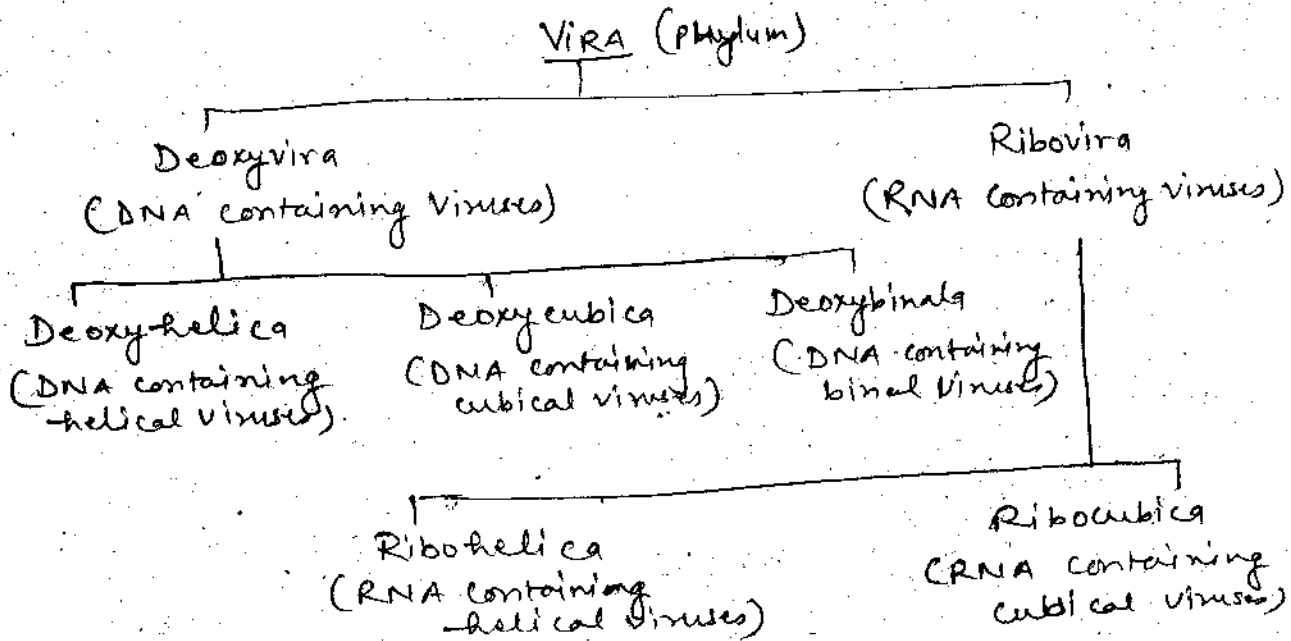 VIRA (Phylum)
Deoxyvira
(DNA containing Viruses)
Ribovira
(RNA containing viruses)
Deoxy-helica
(DNA containing
helical viruses).
Deoxycubica
(DNA containing
cubical viruses)
Deoxybinala
(DNA containing
binal Viruses)
Ribohelica
(RNA containing
helical viruses)
Ribocubica
(RNA containing
cubical viruses)